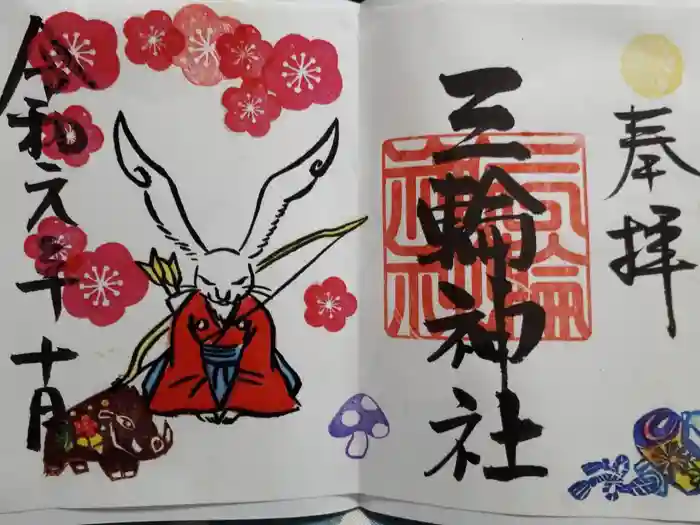 奉拝
三輪神社
三輪神社
令和元年 十月